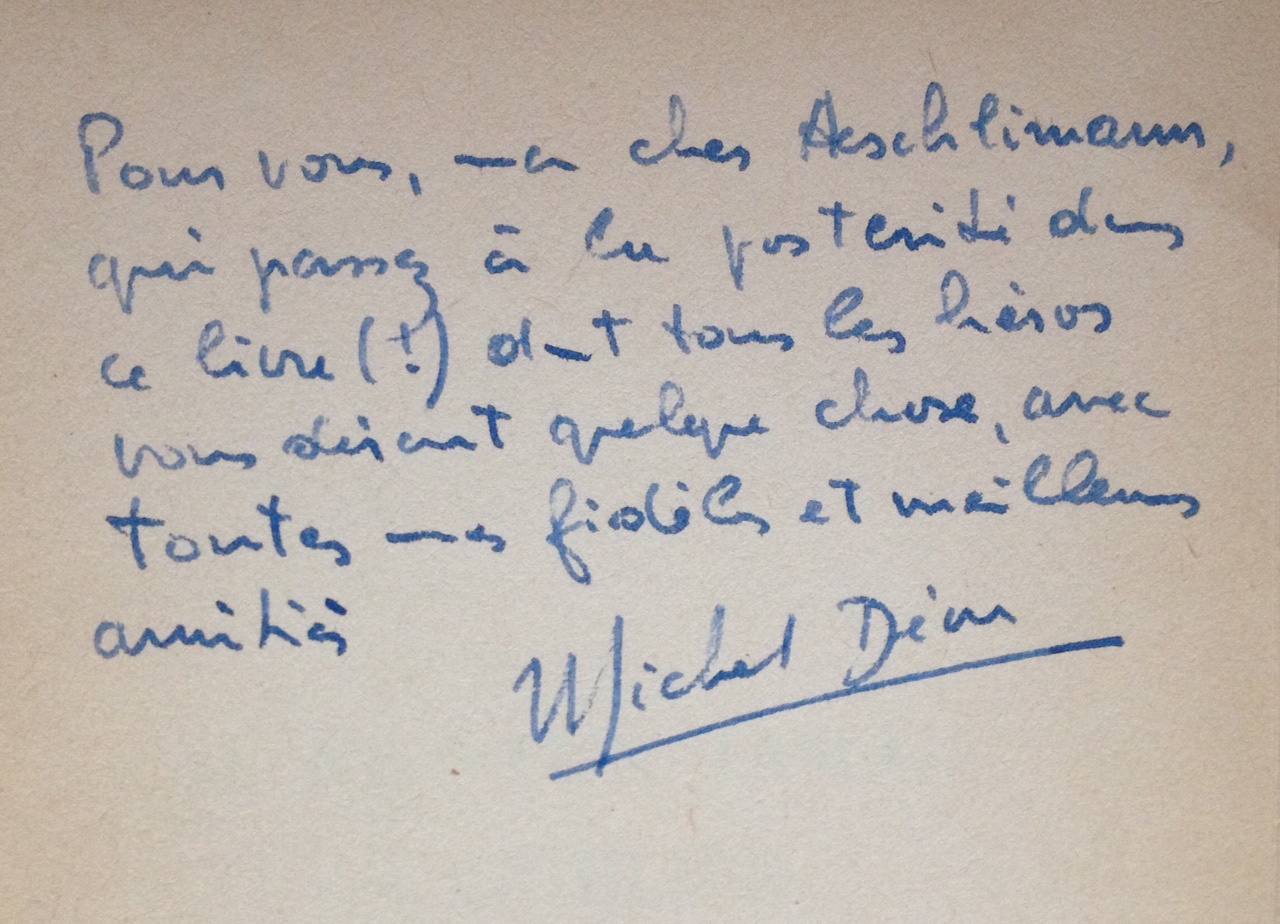 Pour vous, mon cher Aeschlimann,
qui passez à la postérité dans
ce livre (!) dont tous les héros
vous disent quelque chose, avec
toutes mes fidèles et meilleures
amitiés
Michel Déon